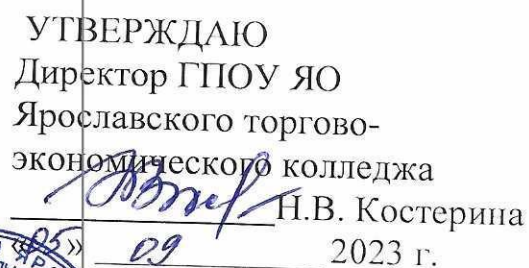 УТВЕРЖДАЮ
Директор ГПОУ ЯО
Ярославского торгово-
экономического колледжа
Н.В. Костерина
«05» 09 2023 г.